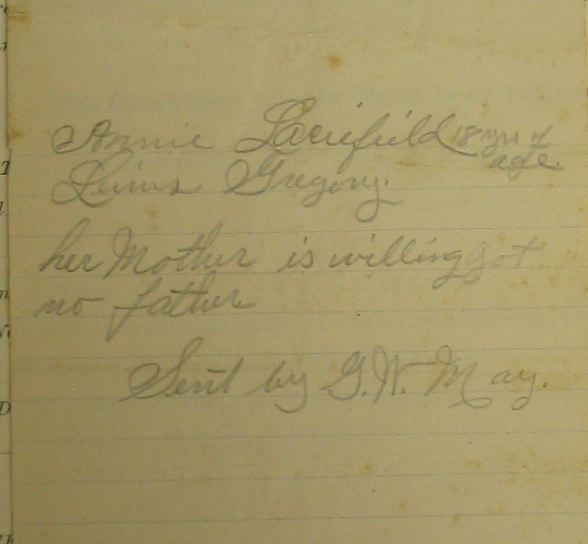 Annie Lacefield 18 yrs of age
Gregory.
her Mother is willing got
no father
Sent by G. W. May.